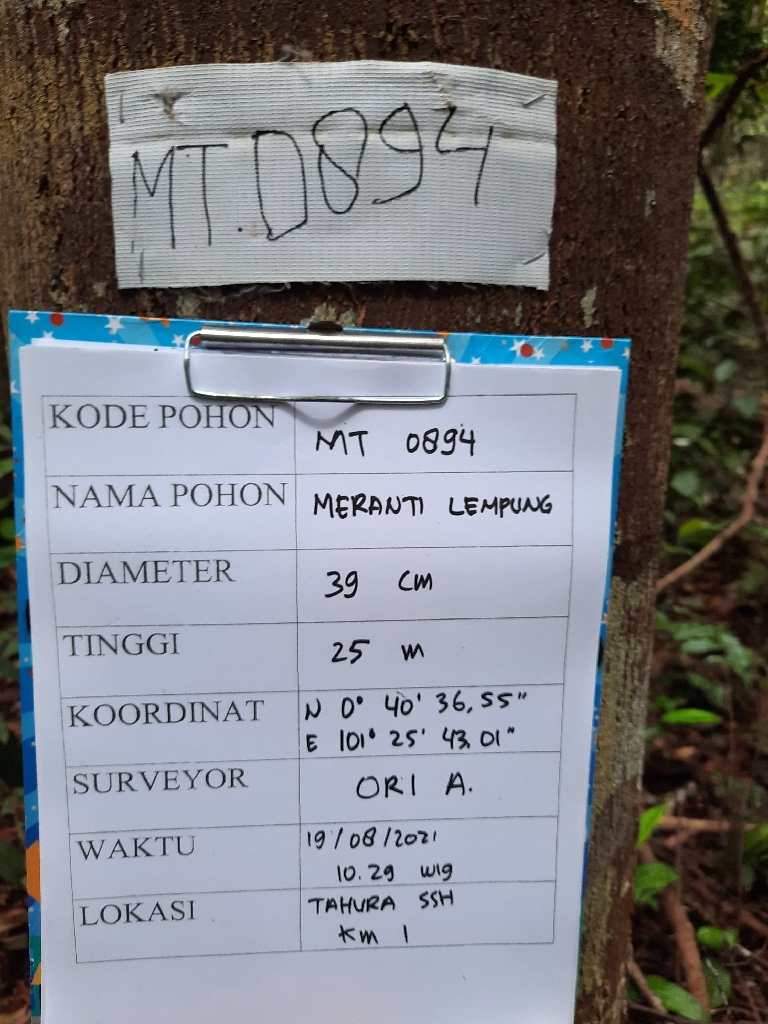 MT.0894
KODE POHON MT 0894
NAMA POHON MERANTI LEMPUNG
DIAMETER 39 cm
TINGGI 25 m
KOORDINAT N 0° 40' 36,55"
E 101° 25' 43,01"
SURVEYOR ORI A.
WAKTU 19/08/2021
10.29 WIB
LOKASI TAHURA SSH
KM 1